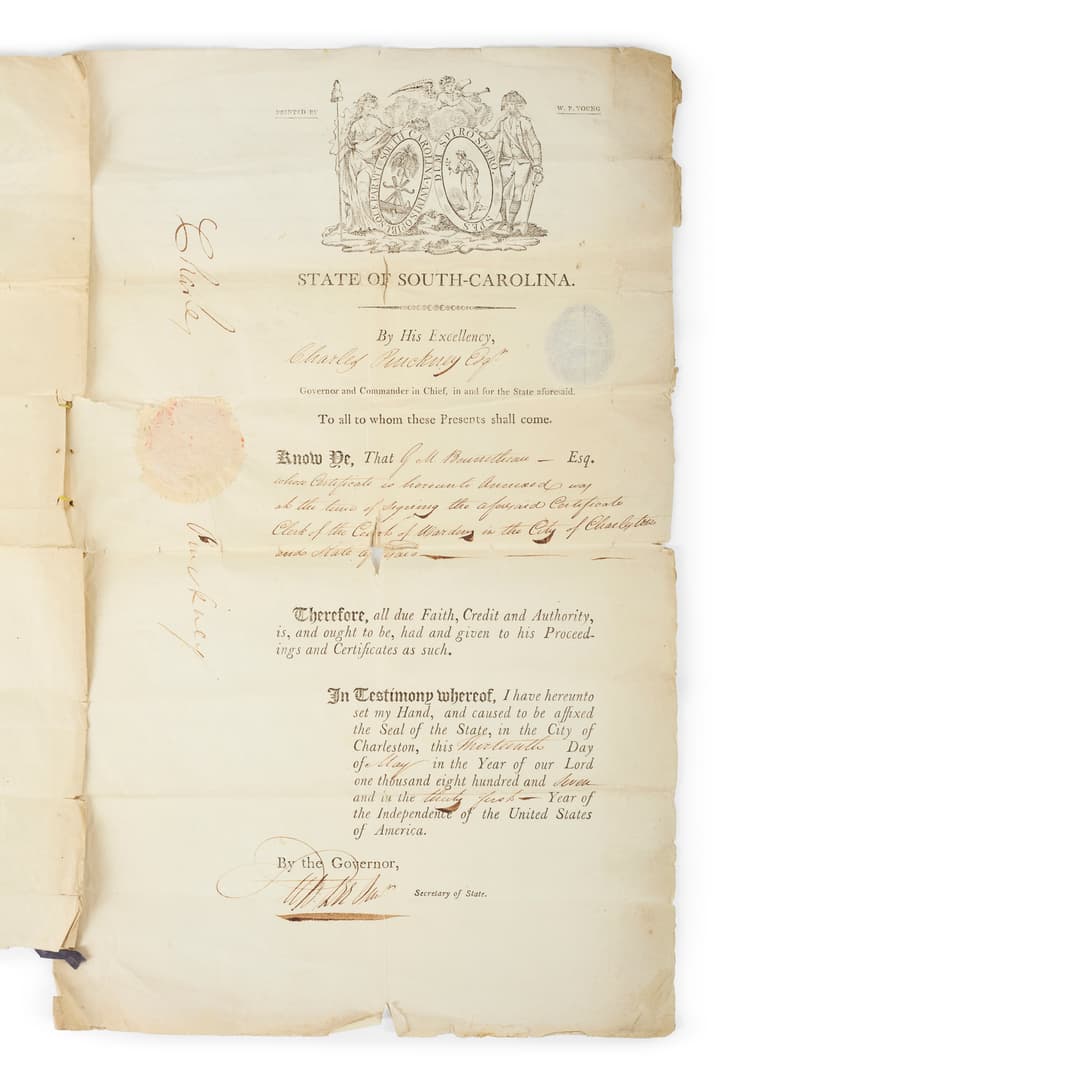 PRINTED BY
W. P. YOUNG
SOUTH CAROLINA
ANIMIS OPIBUSQUE PARATI
DUM SPIRO SPERO
SPES
STATE OF SOUTH-CAROLINA.
By His Excellency,
Charles Pinckney Esqr
Governor and Commander in Chief, in and for the State aforesaid.
To all to whom these Presents shall come.
Know Ye, That G M Bounetheau — Esq.
whose Certificate is hereunto Annexed was
at the time of signing the aforesaid Certificate
Clerk of the Court of Wardens in the City of Charleston
and State
Therefore, all due Faith, Credit and Authority,
is, and ought to be, had and given to his Proceed-
ings and Certificates as such.
In Testimony whereof, I have hereunto
set my Hand, and caused to be affixed
the Seal of the State, in the City of
Charleston, this thirteenth Day
of May in the Year of our Lord
one thousand eight hundred and seven
and in the thirty first — Year of
the Independence of the United States
of America.
By the Governor,
Secretary of State.
Charles
Pinckney